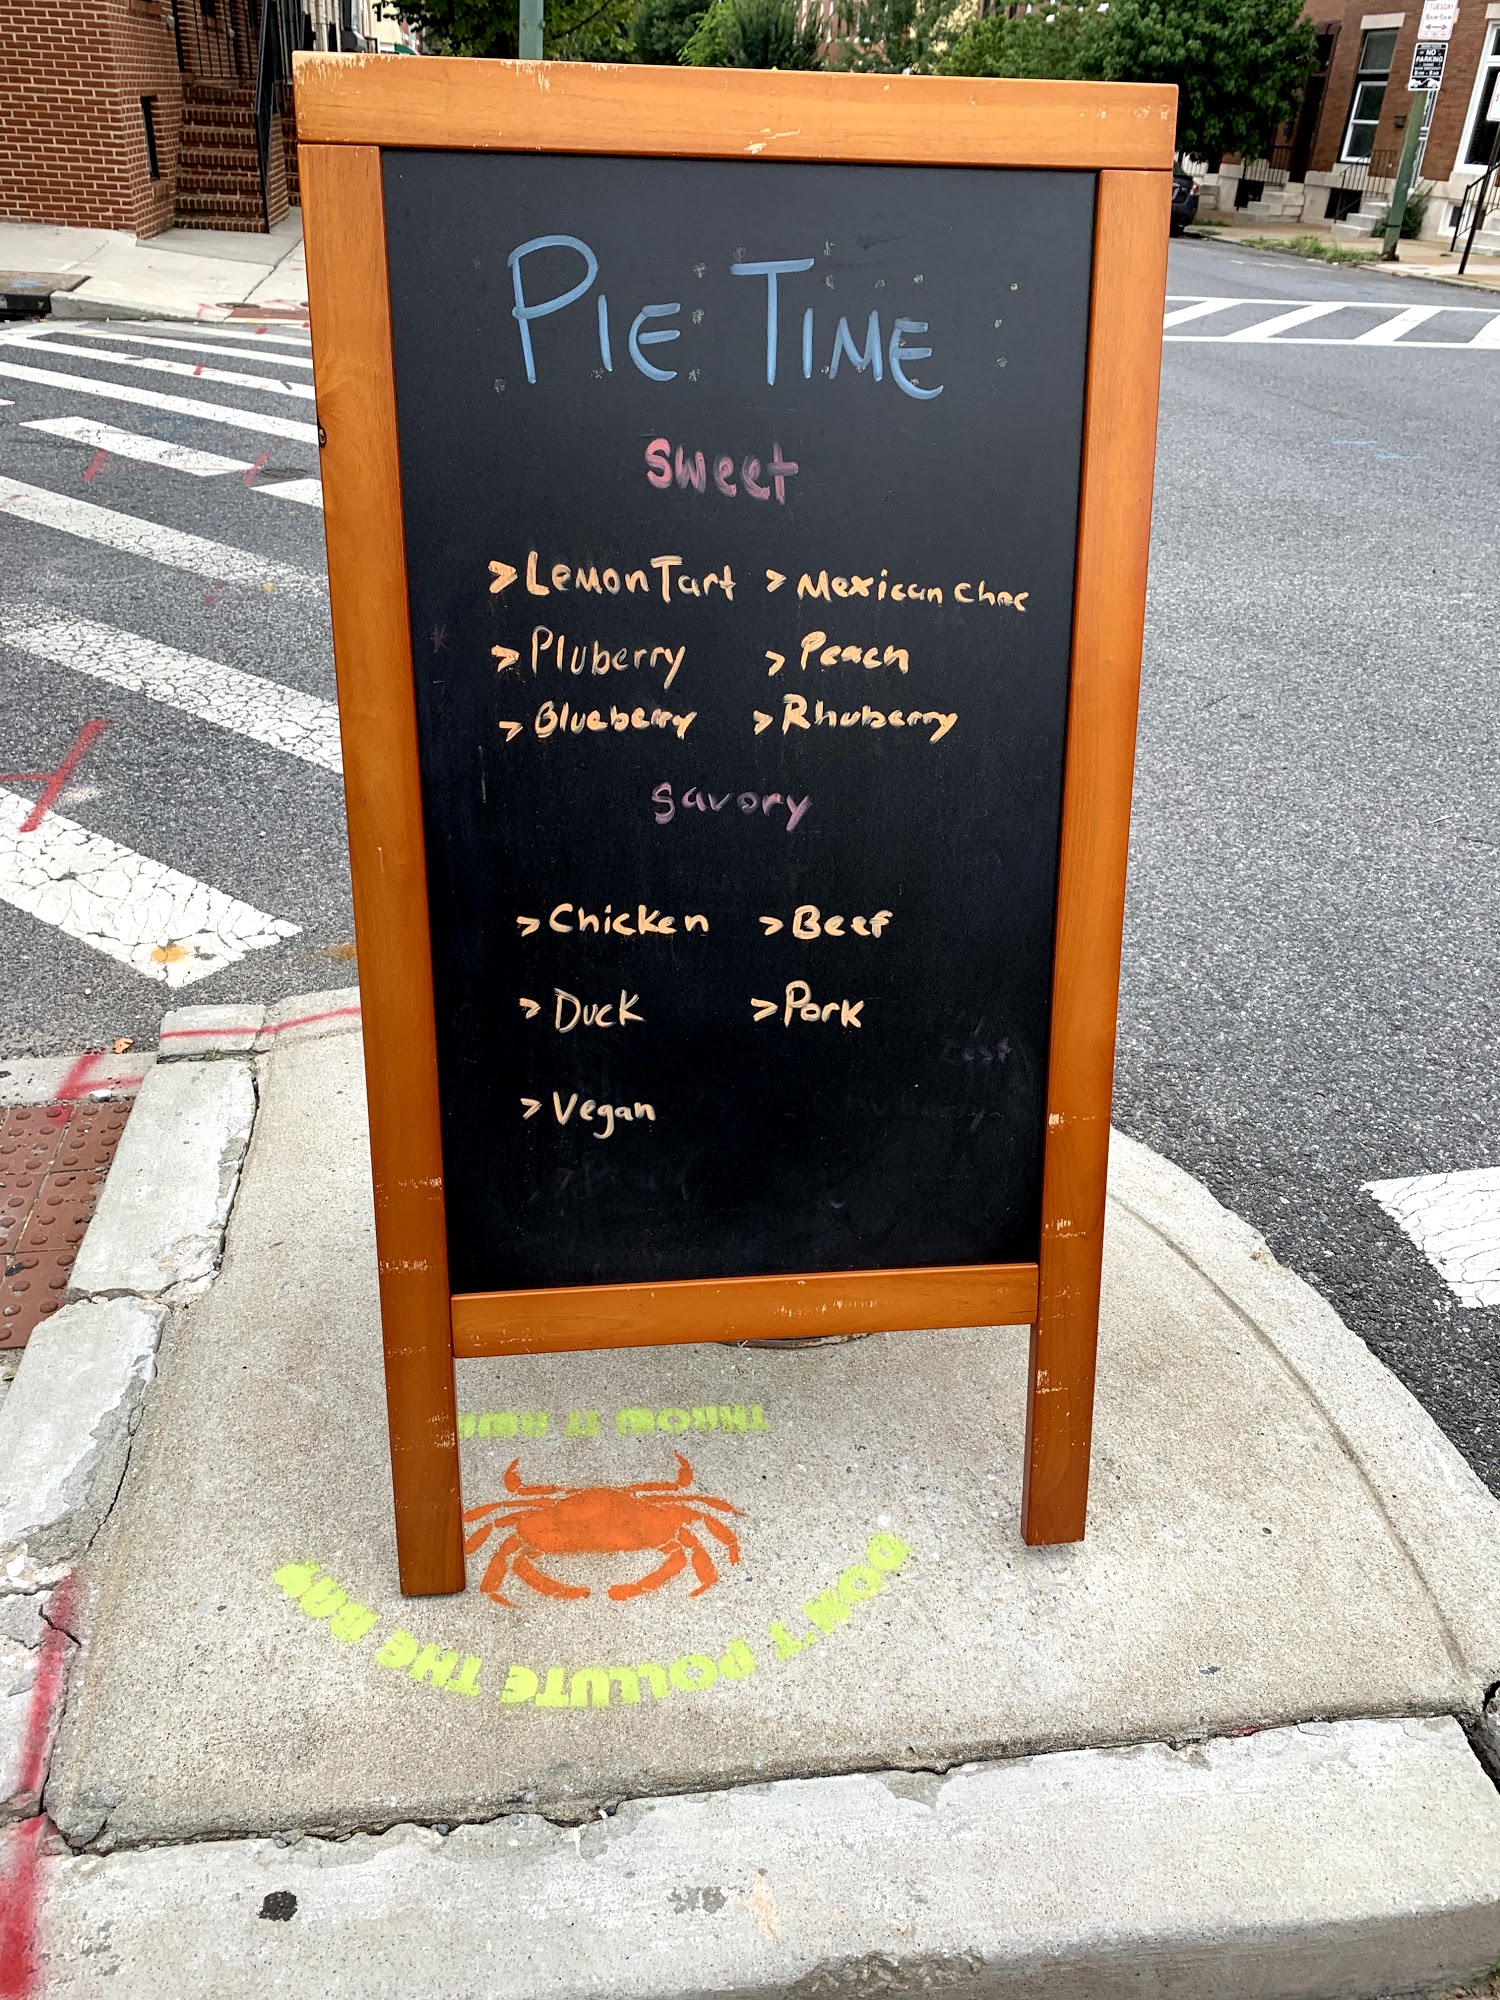 PIE TIME
sweet
> Lemon Tart > Mexican Choc
> Pluberry > Peach
> Blueberry > Rhuberry
savory
> Chicken > Beef
> Duck > Pork
> Vegan
THROW IT
DON'T POLLUTE THE BAY
TUESDAY
NO
PARKING